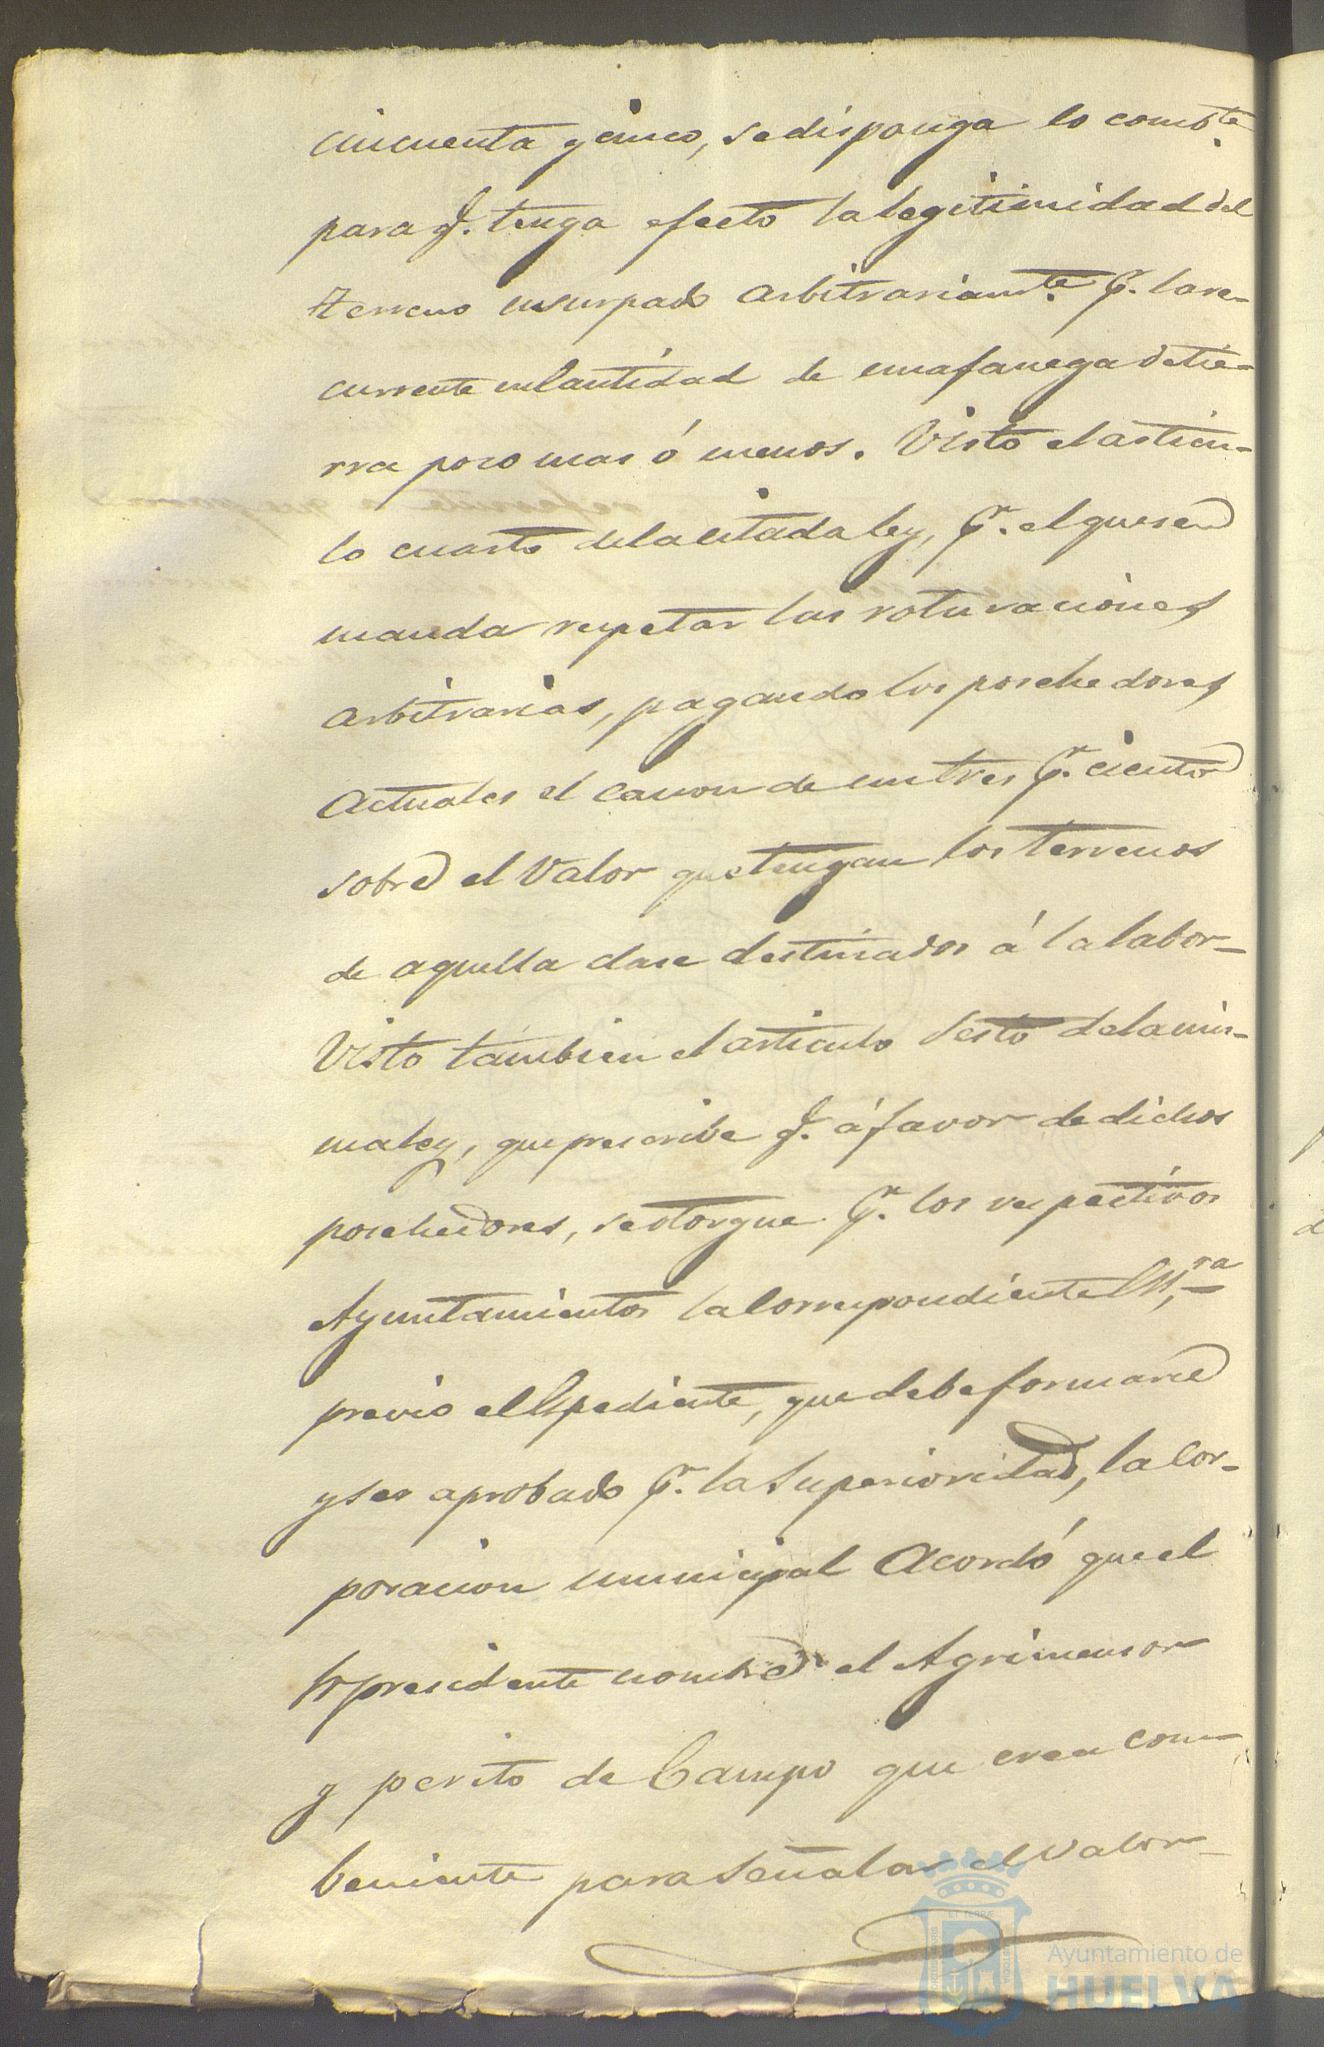 cincuenta y cinco, se disponga lo comb.te
para q. tenga efecto la legitimidad del
terreno usurpado arbitrariamte. pr. la re-
currente en Cantidad de una fanega de tie-
rra poco mas ó menos. Visto el articu-
lo cuarto de la citada ley, pr. el que se
manda respetar las roturaciones
arbitrarias, pagando los posehedores
Actuales el canon de un tres pr. ciento
sobre el Valor que tengan los terrenos
de aquella clase destinados á la labor-
Visto tambien el articulo Sesto de la mis-
ma ley, que prescribe q. á favor de dichos
posehedores, se otorgue pr. los respectivos
Ayuntamientos la Correspondiente Es,ra
previo el Espediente, que debe formarse
y ser aprobado pr. la Superioridad, la Cor-
poracion municipal Acordó que el
Sr presidente nombre el Agrimensor
y perito de Campo que crea com-
beniente para Señalar el Valor-
Ayuntamiento de
HUELVA